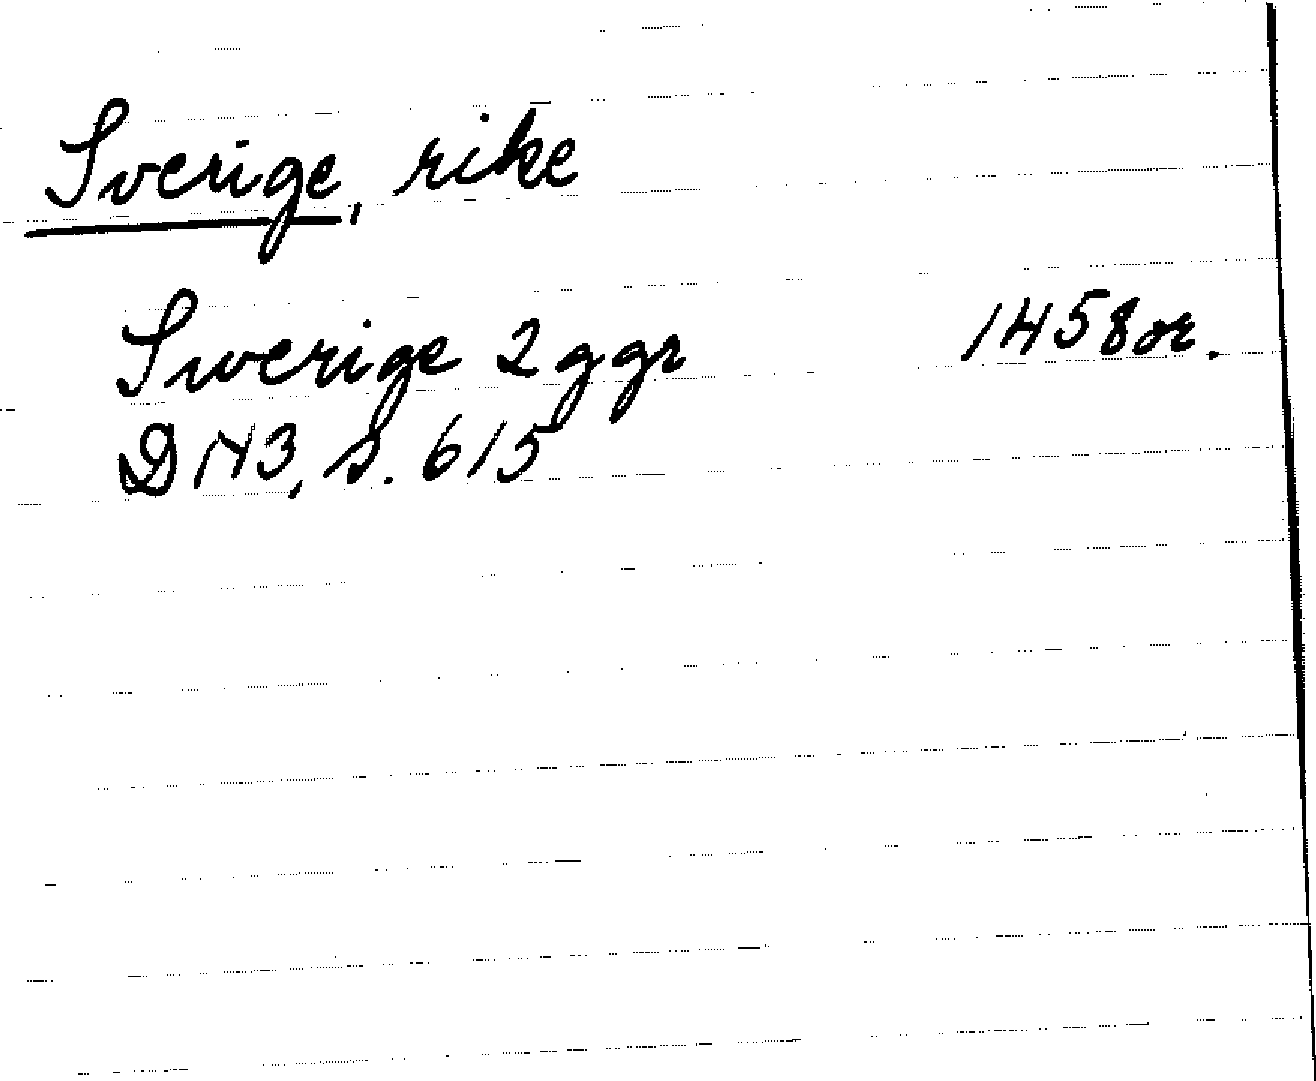 Sverige, rike
Swerige 2 ggr 1458 or.
DN3, s. 615